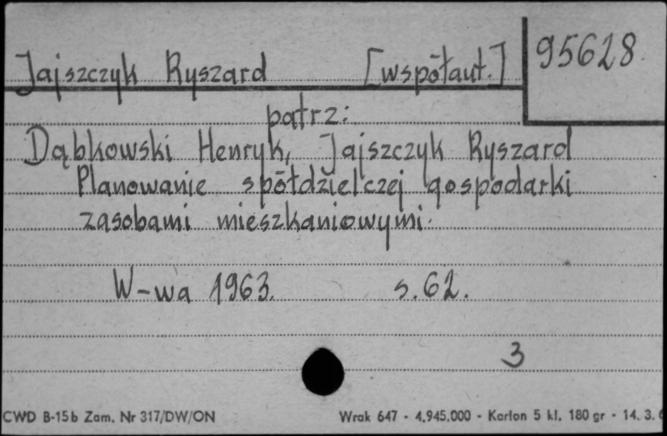 Jajszczyk Ryszard [współaut.] 95628
patrz:
Dąbkowski Henryk, Jajszczyk Ryszard
Planowanie spółdzielczej gospodarki
zasobami mieszkaniowymi.
W-wa 1963. s. 62.
3
CWD B-15b Zam. Nr 317/DW/ON Wrak 647 - 4.945.000 - Karton 5 kl. 180 gr - 14. 3.